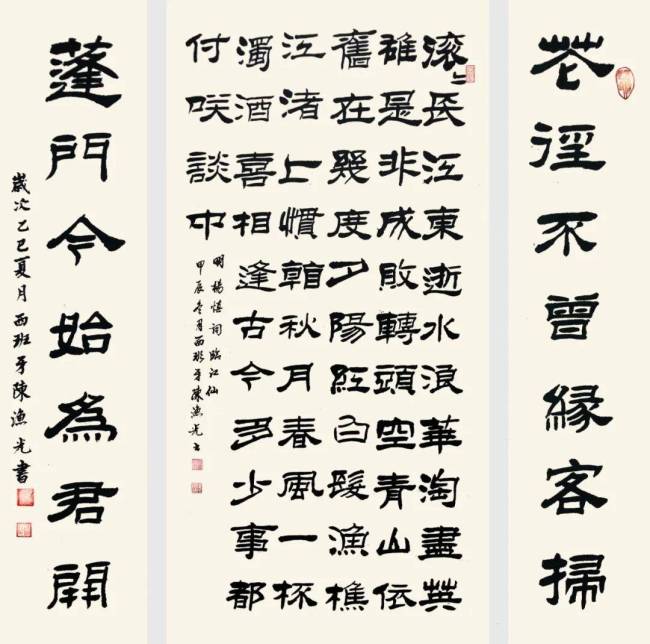 花徑不曾緣客掃
滚々長江東逝水浪華淘盡英
雄是非成敗轉頭空青山依
舊在幾度夕陽紅白髮漁樵
江渚上慣看秋月春風一杯
濁酒喜相逢古今多少事都
付咲談中
明楊慎詞臨江仙
甲辰冬月西班牙陳漁光書
蓬門今始為君開
歲次乙巳夏月西班牙陳漁光書